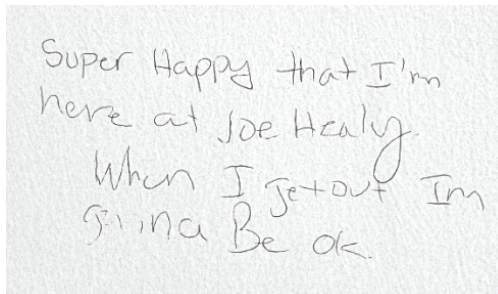 Super Happy that I'm
here at Joe Healy.
When I get out Im
gonna Be ok.